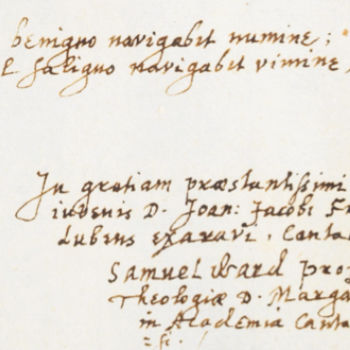 benigno navigabit numine;
saligno navigabit vimine,
In gratiam præstantissimi
iuvenis D. Joan: Jacobi
lubens exaravi, Canta
Samuel Ward Pro
Theologiæ D. Marga
in Academia Canta